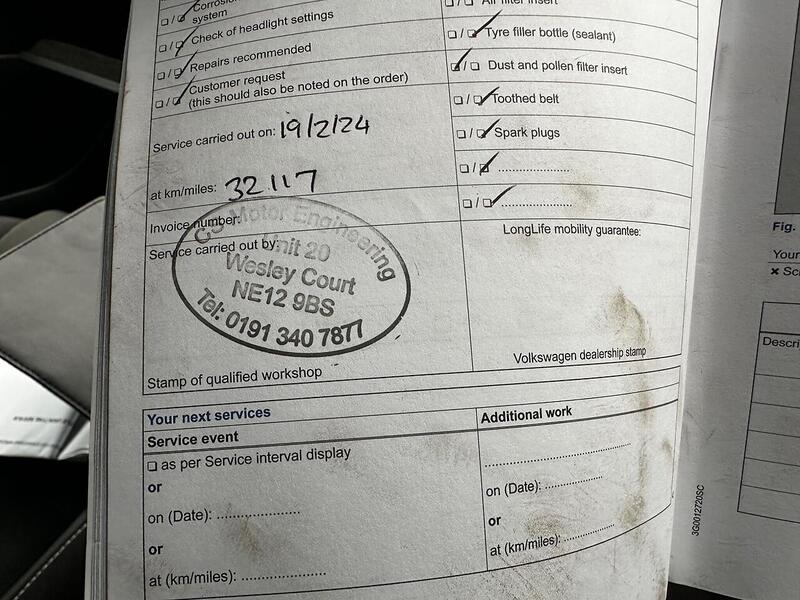 system
☐ / ☑ Check of headlight settings
☐ / ☑ Repairs recommended
☐ / ☑ Customer request
(this should also be noted on the order)
Service carried out on: 19/2/24
at km/miles: 32117
Invoice number:
Service carried out by:
GS Motor Engineering
Unit 20
Wesley Court
NE12 9BS
Tel: 0191 340 7877
Stamp of qualified workshop
☐ / ☑ Tyre filler bottle (sealant)
☑ / ☐ Dust and pollen filter insert
☐ / ☑ Toothed belt
☐ / ☑ Spark plugs
☐ / ☑ ....................
☐ / ☑ ....................
LongLife mobility guarantee:
Volkswagen dealership stamp
Your next services
Service event
☐ as per Service interval display
or
on (Date): ....................
or
at (km/miles): ....................
Additional work
....................
on (Date): ....................
or
at (km/miles): ....................
3G0012720SC
Fig.
Your